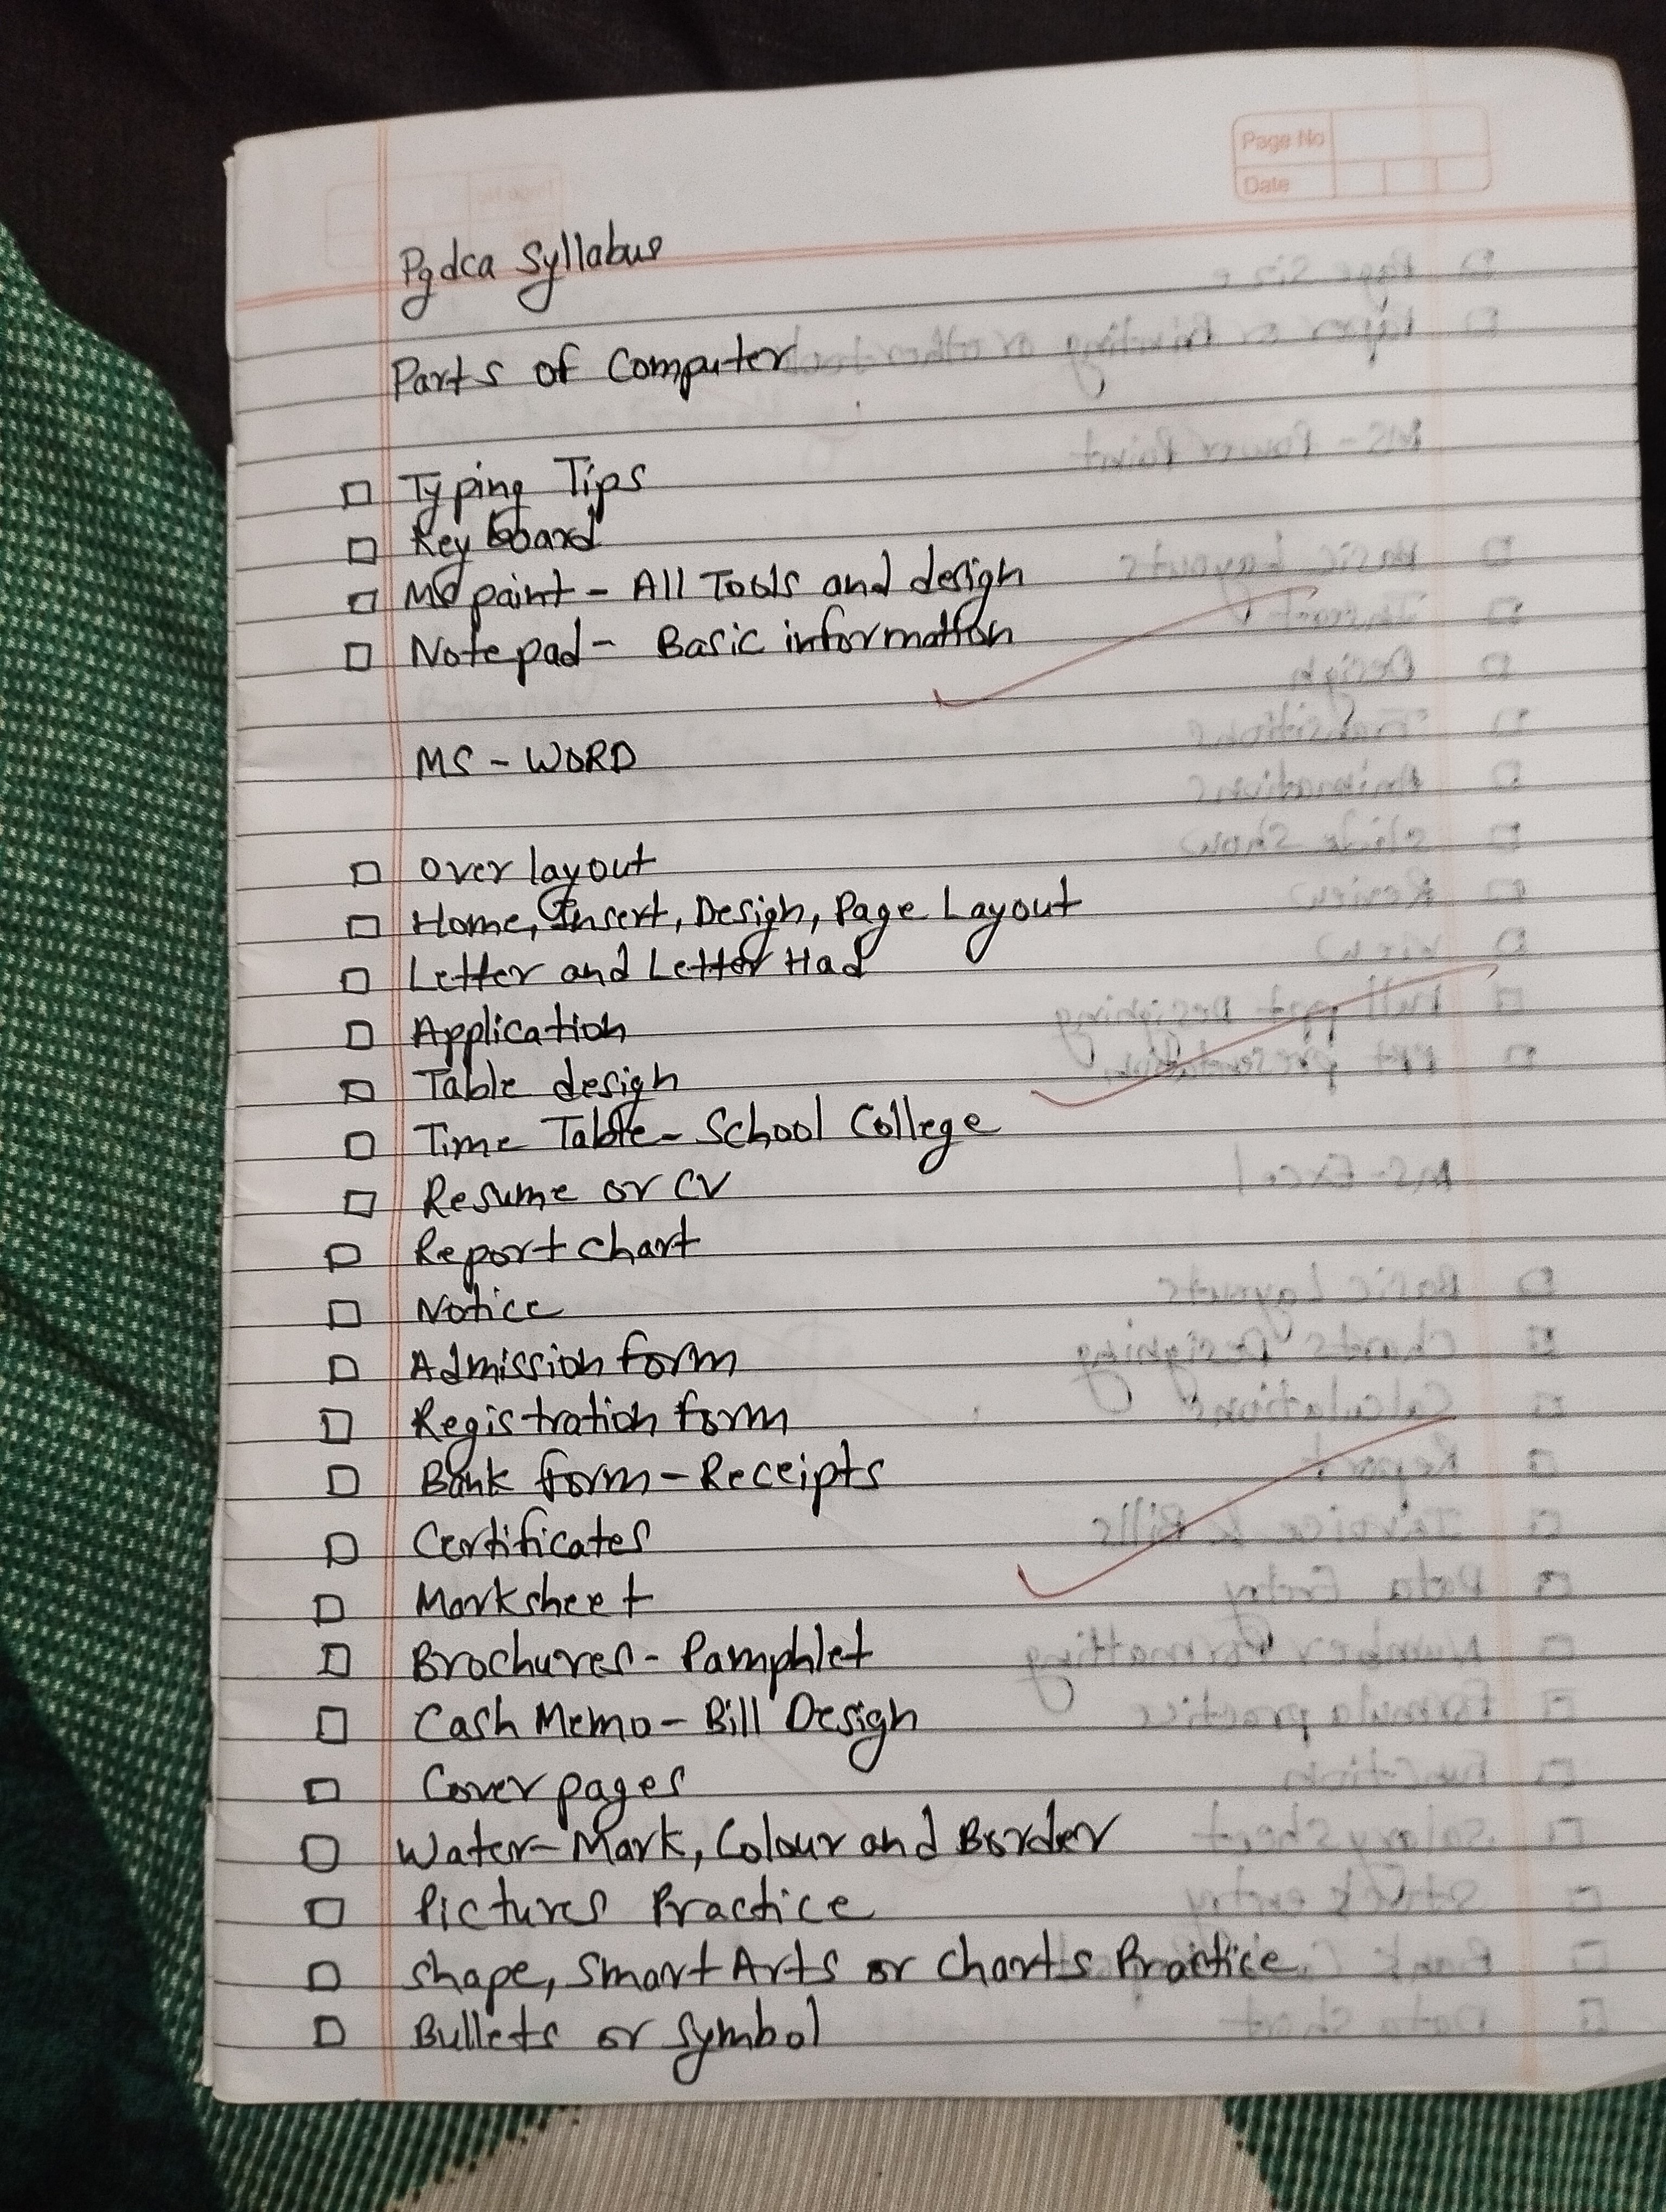 Page No
Date
Pgdca Syllabus
Parts of Computer
Typing Tips
Key board
MS paint - All Tools and design
Notepad - Basic information
MS - WORD
Over layout
Home, Insert, Design, Page Layout
Letter and Letter Had
Application
Table design
Time Table - School College
Resume or CV
Report chart
Notice
Admission form
Registration form
Bank form - Receipts
Certificates
Marksheet
Brochures - Pamphlet
Cash Memo - Bill Design
Cover pages
Water-Mark, Colour and Border
Pictures Practice
Shape, Smart Arts or Charts Practice
Bullets or Symbol